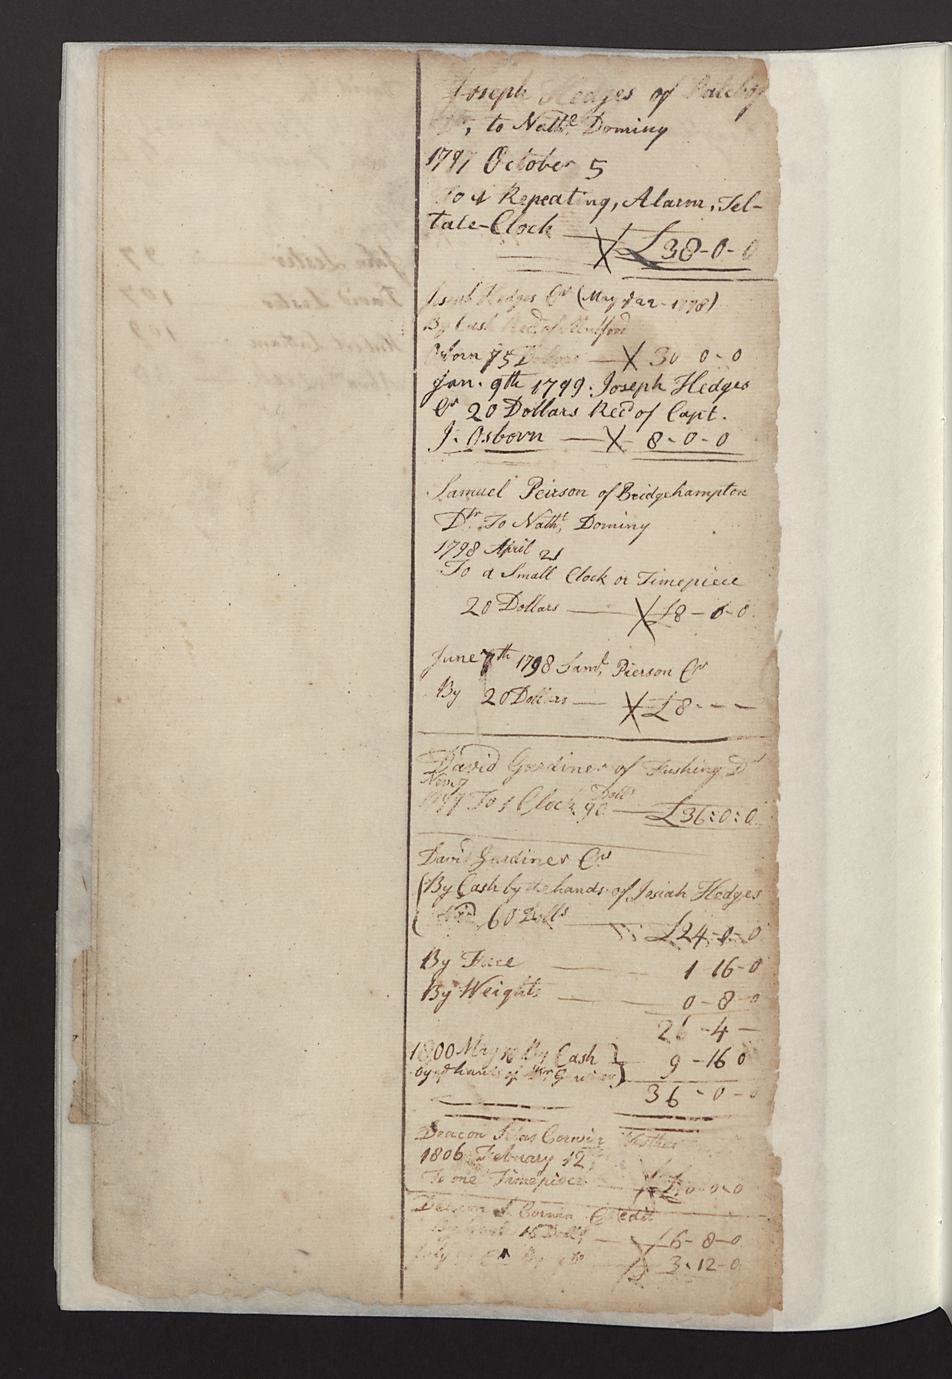 Joseph Hedges of
Dr, to Nathl. Dominy
1797 October 5
To 1 Repeating, Alarm, Tel-
tale-Clock £38-0-0
Joseph Hedges Cr (May 22-1798)
By Cash Recd of
Osborn 75 Dollars X 30 0-0
Jan. 9th 1799. Joseph Hedges
Cr 20 Dollars Recd of Capt.
J. Osborn X 8-0-0
Samuel Peirson of Bridgehampton
Dr. To Nathl, Dominy
1798 April 21
To a Small Clock or Timepiece
20 Dollars X £8-0-0
June 7th 1798 Saml, Pierson Cr
By 20 Dollars X £8---
David Gardiner of Flushing Dr
Nov. 7
1799 To 1 Clock 90 Dolls £36:0:0
David Gardiner Cr
(By Cash by the hands of Josiah Hedges
60 Dolls £24-0-0
By Face 1 16-0
By Weights 0-8-0
26-4-
1800 May By Cash } 9-16 0
by ye hands of Gardiner
36-0-0
Deacon Silas Corwin
1806 Febuary 12
To one Timepiece 0-0-0
Deacon S. Corwin Credit
By 15 Dolls 6-8-0
July By X 3-12-0
John Lester 97
David Lester 107
109